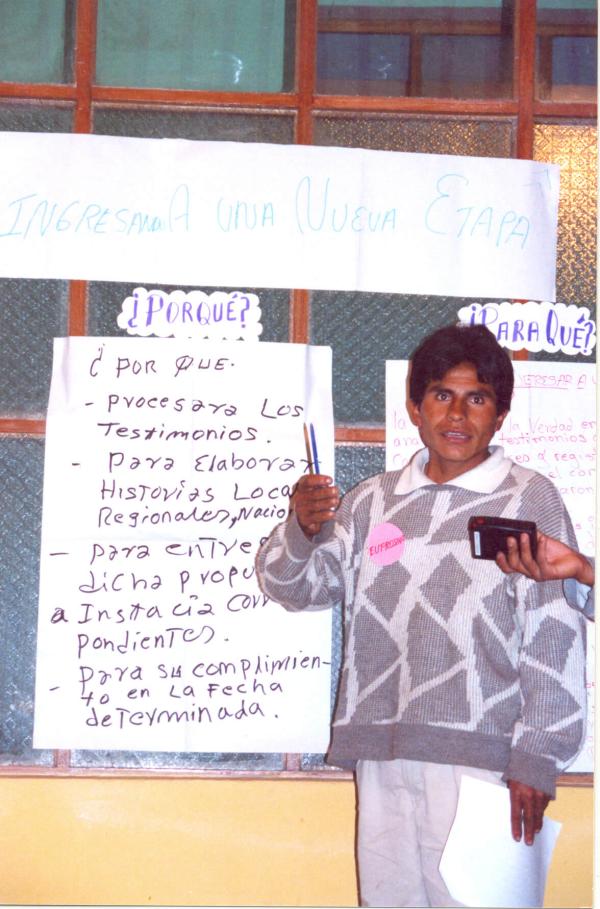 INGRESANDO A UNA NUEVA ETAPA
¿PORQUÉ?
¿PARA QUÉ?
¿ POR QUE.
- Procesara Los
Testimonios.
- Para Elaborar
Historias Loca
Regionales, Nacio
- para entre
dicha propu
a Instacia corr
pondientes.
- para su complimien-
to en La Fecha
determinada.
la Verdad en
testimonios
EUFROSIN